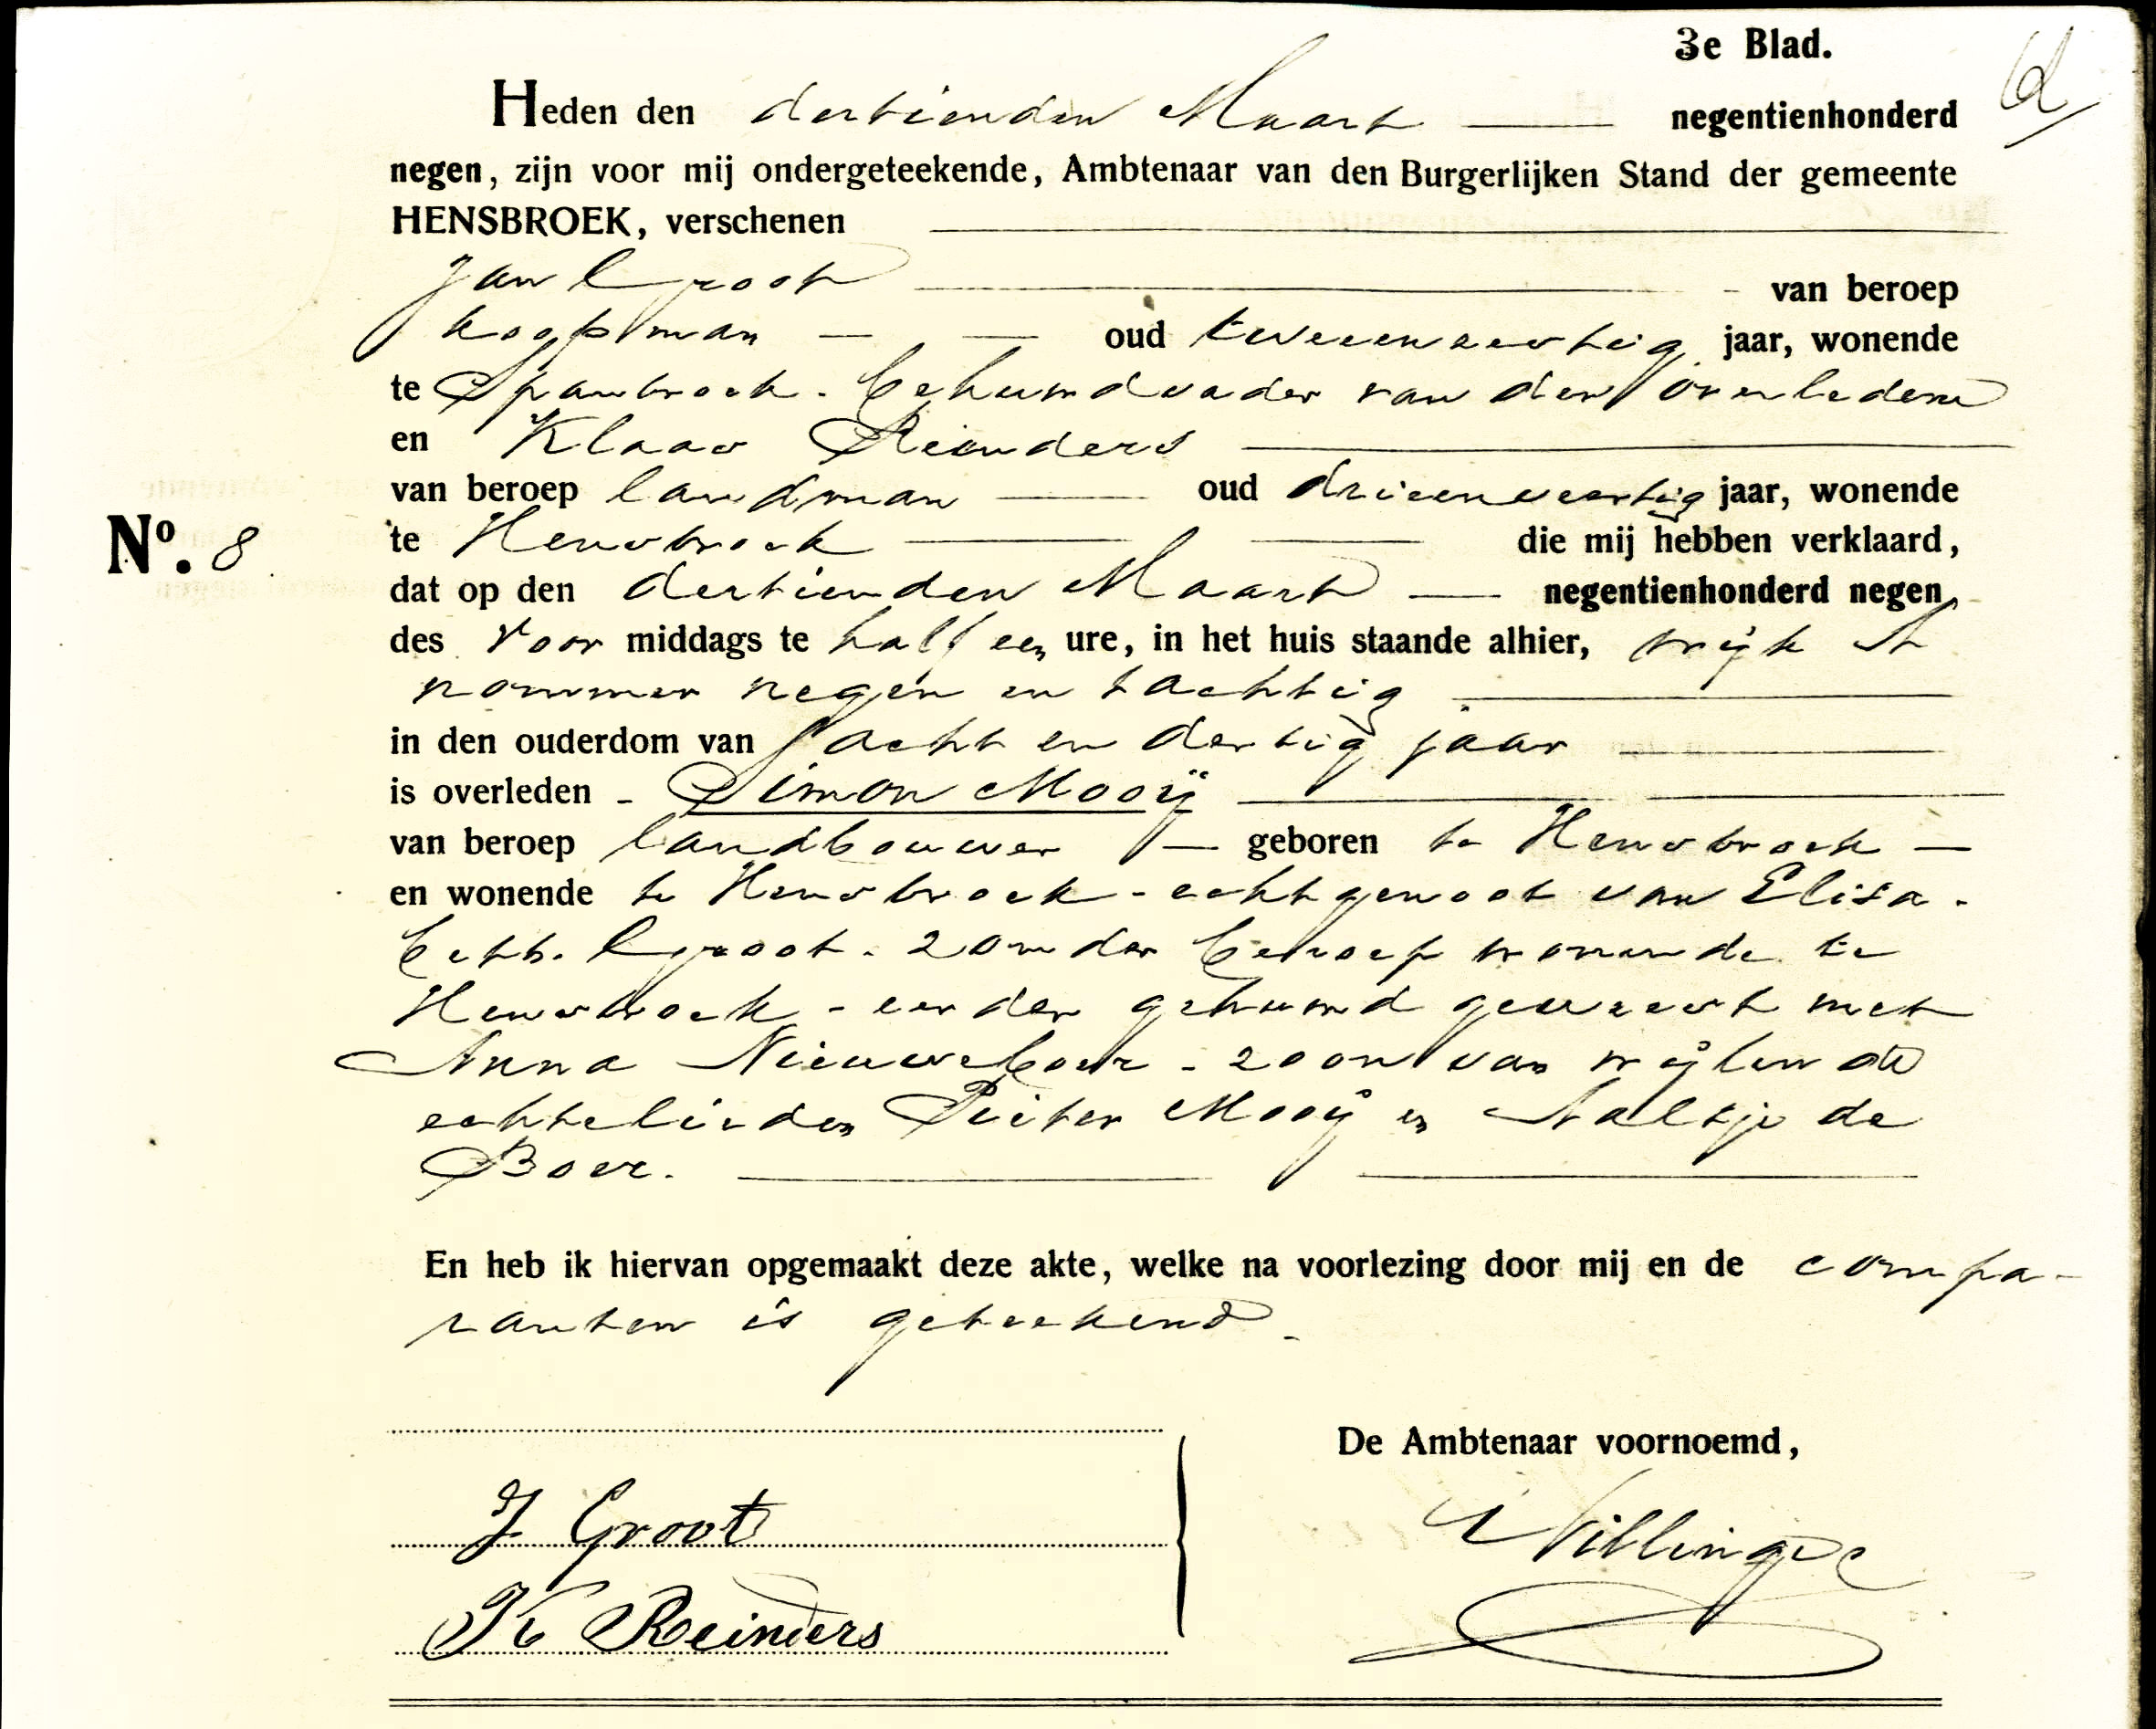 3e Blad.
Heden den dertienden Maart negentienhonderd
negen, zijn voor mij ondergeteekende, Ambtenaar van den Burgerlijken Stand der gemeente
HENSBROEK, verschenen
Jan Groot van beroep
koopman oud tweeenveertig jaar, wonende
te Spanbroek. behuwdvader van den overledene
en Klaas Reinders
van beroep landman oud drieenveertig jaar, wonende
No. 8 te Hensbroek die mij hebben verklaard,
dat op den dertienden Maart negentienhonderd negen,
des voor middags te half een ure, in het huis staande alhier, wijk A
nommer negen en tachtig
in den ouderdom van acht en dertig jaar
is overleden - Simon Mooij
van beroep landbouwer geboren te Hensbroek
en wonende te Hensbroek - echtgenoot van Elisa-
beth. Groot. zonder beroep wonende te
Hensbroek - eerder gehuwd geweest met
Anna Nieuweboer - zoon van wijlen de
echtelieden Pieter Mooij en Aaltje de
Boer.
En heb ik hiervan opgemaakt deze akte, welke na voorlezing door mij en de compa-
ranten is geteekend.
De Ambtenaar voornoemd,
J Groot
K Reinders